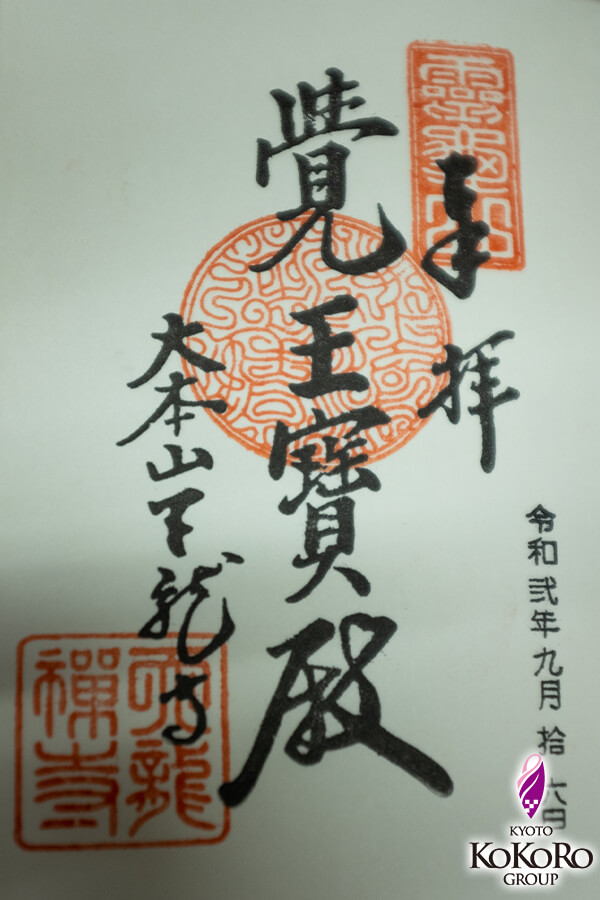 奉拝
覺王寶殿
大本山天龍寺
令和弐年九月拾六日
靈龜山
天龍禅寺
KYOTO
KOKORO
GROUP